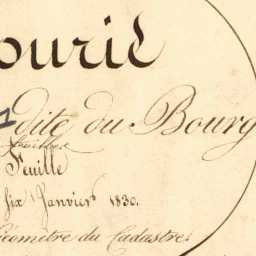 ouril
dite du Bourg
Feuille
six Janvier 1830.
Géomètre du Cadastre